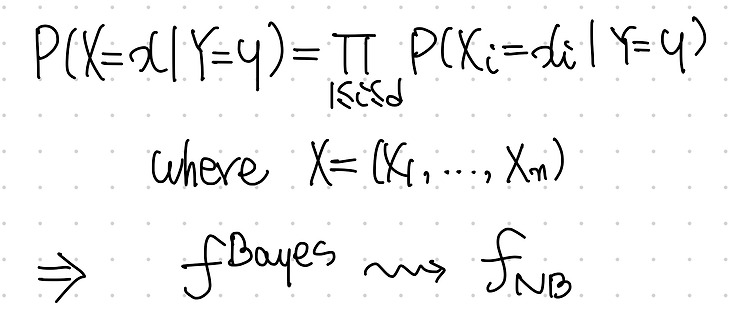 P(X=x|Y=y) = ∏_{1≤i≤d} P(X_i=x_i|Y=y)
where X=(X_1, ..., X_n)
⇒ f^{Bayes} ⇝ f_{NB}